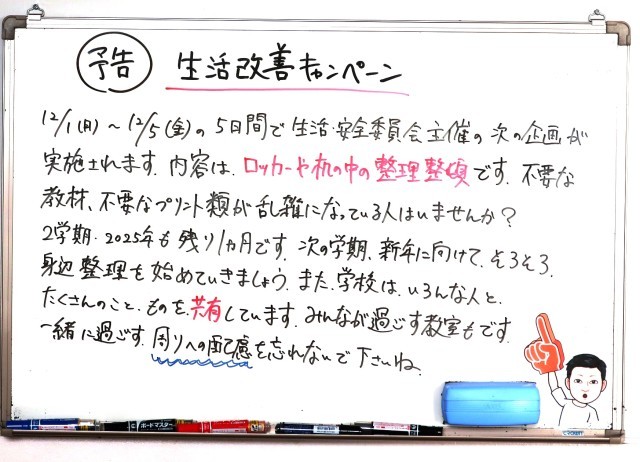 予告 生活改善キャンペーン
12/1(月)～12/5(金)の5日間で生活・安全委員会主催の次の企画が
実施されます。内容は、ロッカーや机の中の整理整頓です。不要な
教材、不要なプリント類が乱雑になっている人はいませんか？
2学期・2025年も残り1ヵ月です。次の学期、新年に向けて、そろそろ、
身辺整理を始めていきましょう。また、学校は、いろんな人と、
たくさんのこと、ものを、共有しています。みんなが過ごす教室もです。
一緒に過ごす、周りへの配慮を忘れないで下さいね。
ボードマスター